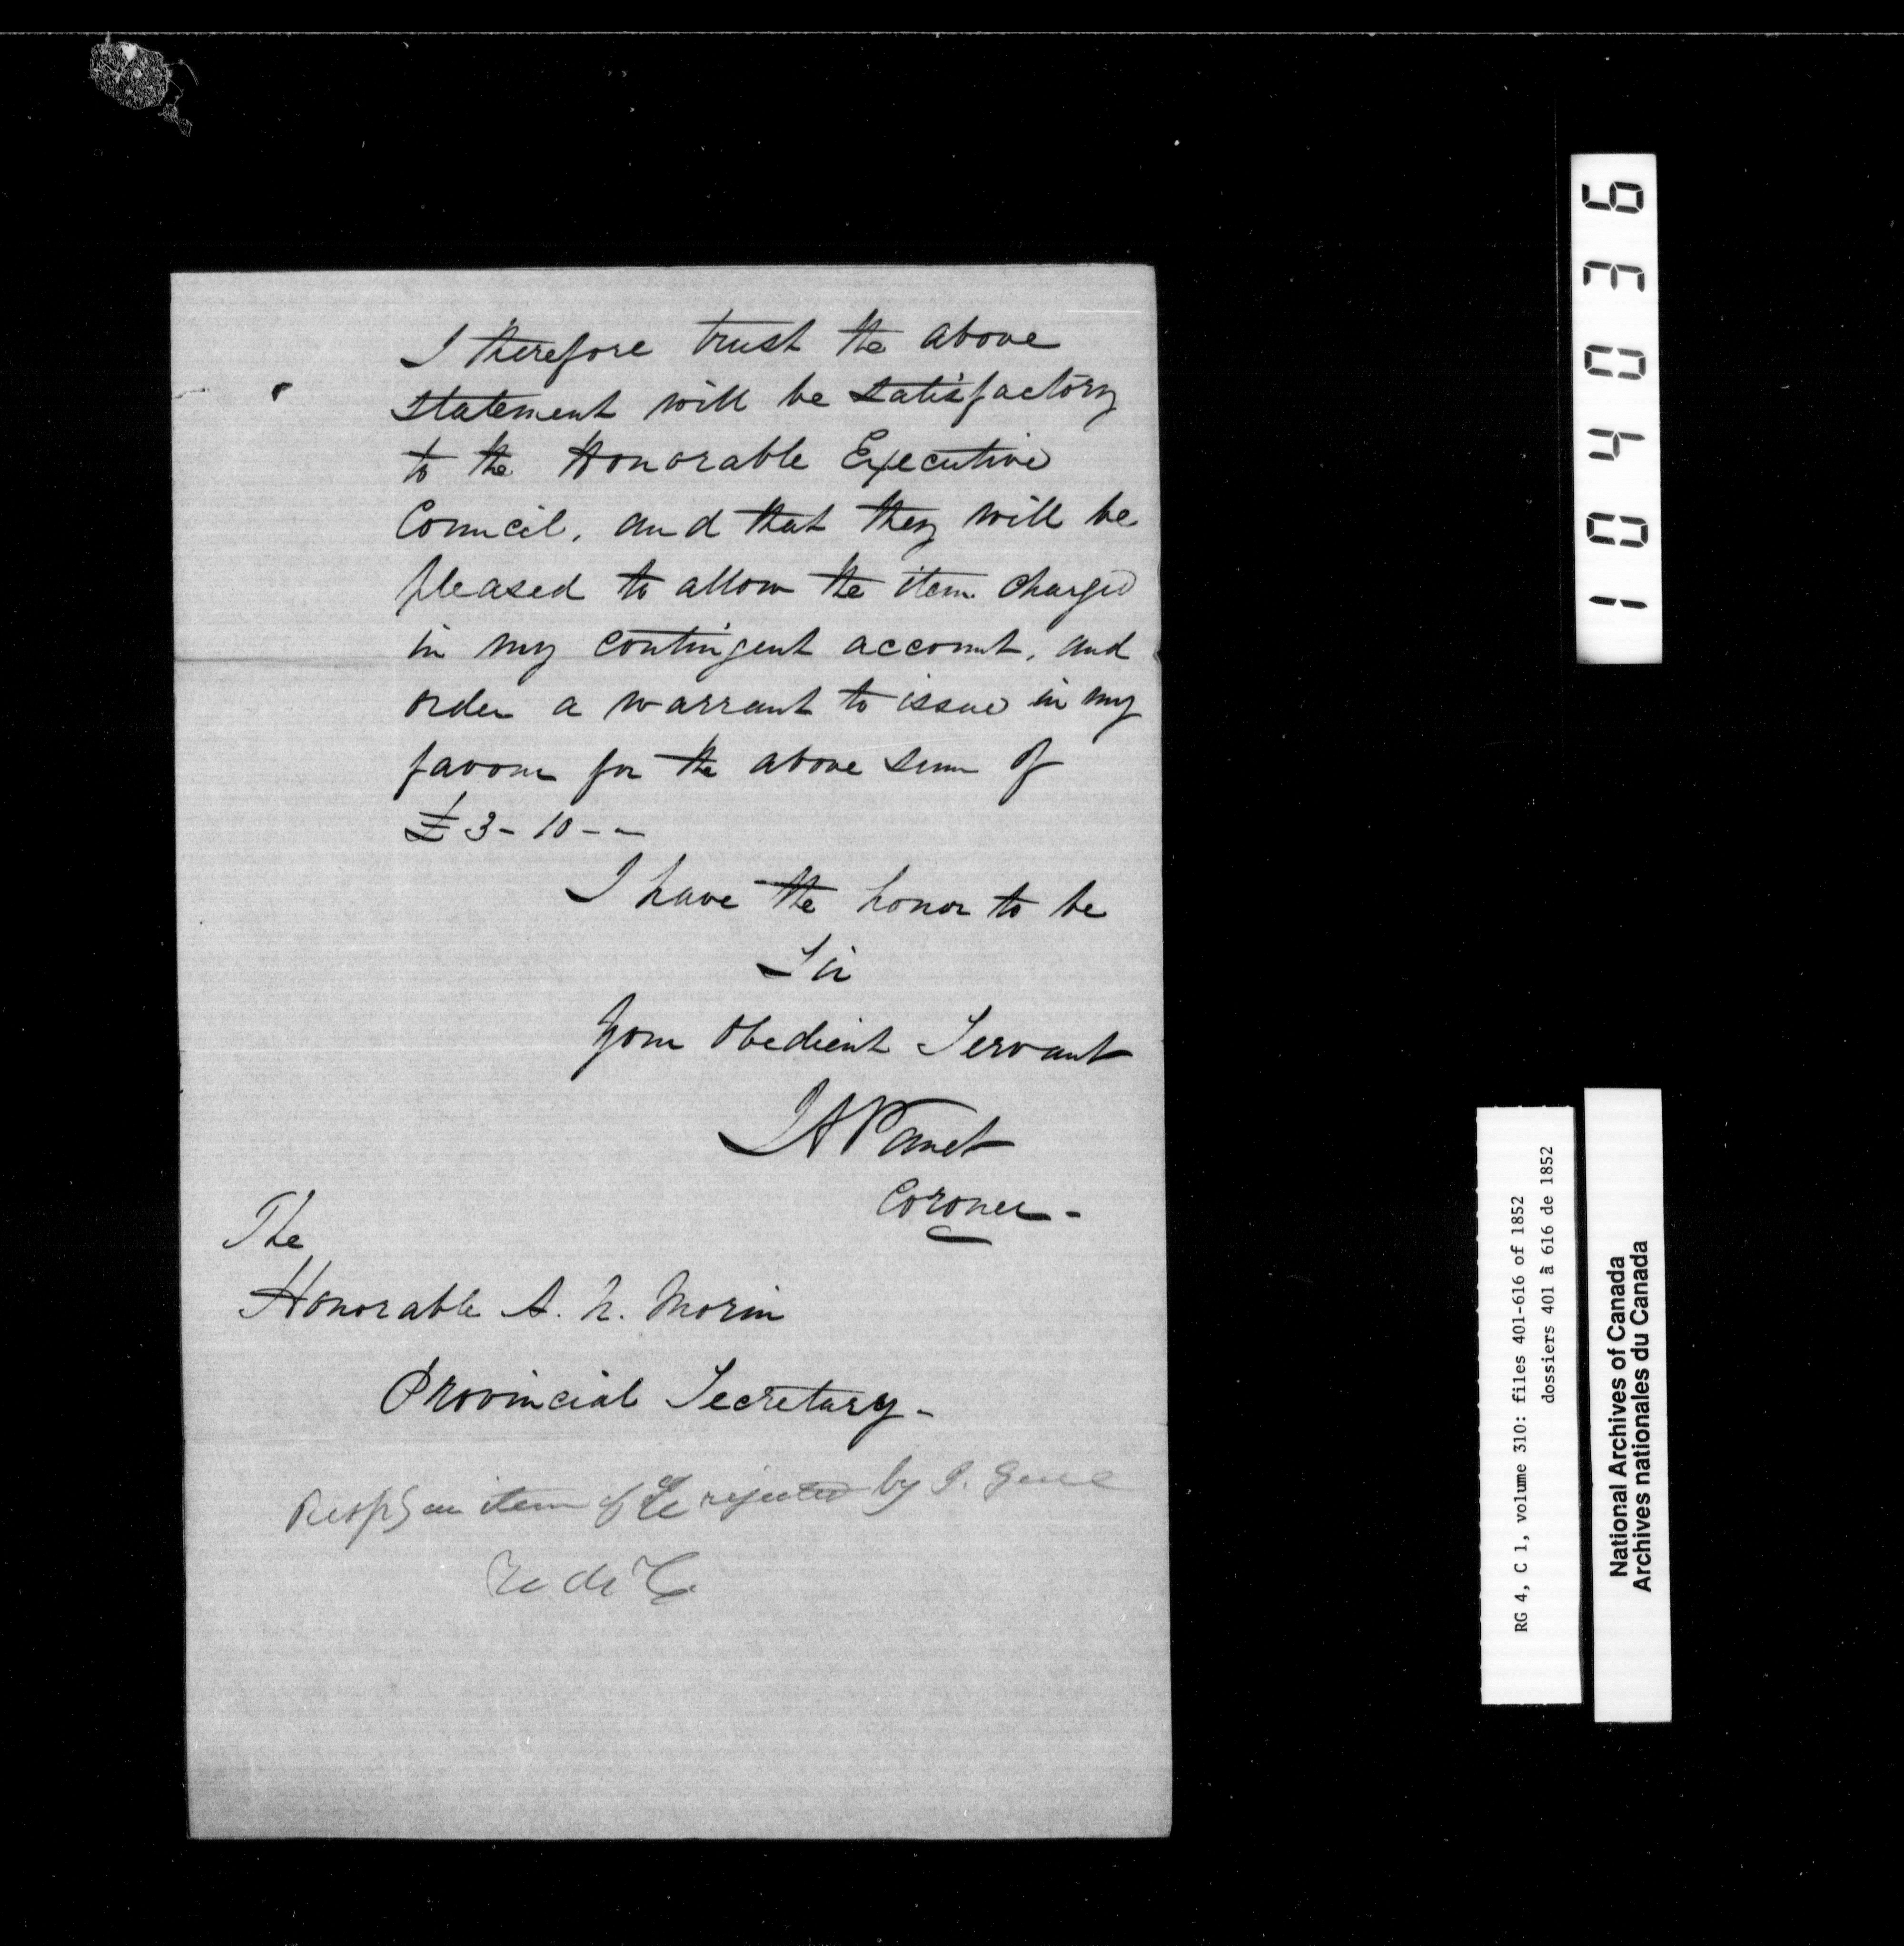 I therefore trust the above
statement will be satisfactory
to the Honorable Executive
Council, and that they will be
pleased to allow the item charged
in my contingent account, and
order a warrant to issue in my
favour for the above sum of
£ 3 - 10 - -
I have the honor to be
Sir
Your Obedient Servant
J A Panet
Coroner -
The
Honorable A. N. Morin
Provincial Secretary -
an item of rejected by I. Genl
104036
RG 4, C 1, volume 310: files 401-616 of 1852
dossiers 401 à 616 de 1852
National Archives of Canada
Archives nationales du Canada